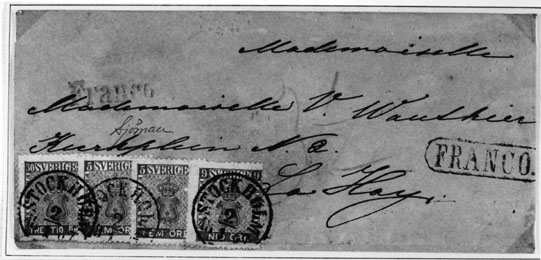 Mademoiselle
Franco
Mademoiselle V. Wauthier
Sjöman
Kurplein No
FRANCO.
La Haye.
30 SVERIGE 5 SVERIGE 5 SVERIGE 9 SVERIGE 9
STOCKHOLM STOCKHOLM STOCKHOLM
2 2 2
TRETTIO FEM ÖRE FEM ÖRE NIO ÖRE